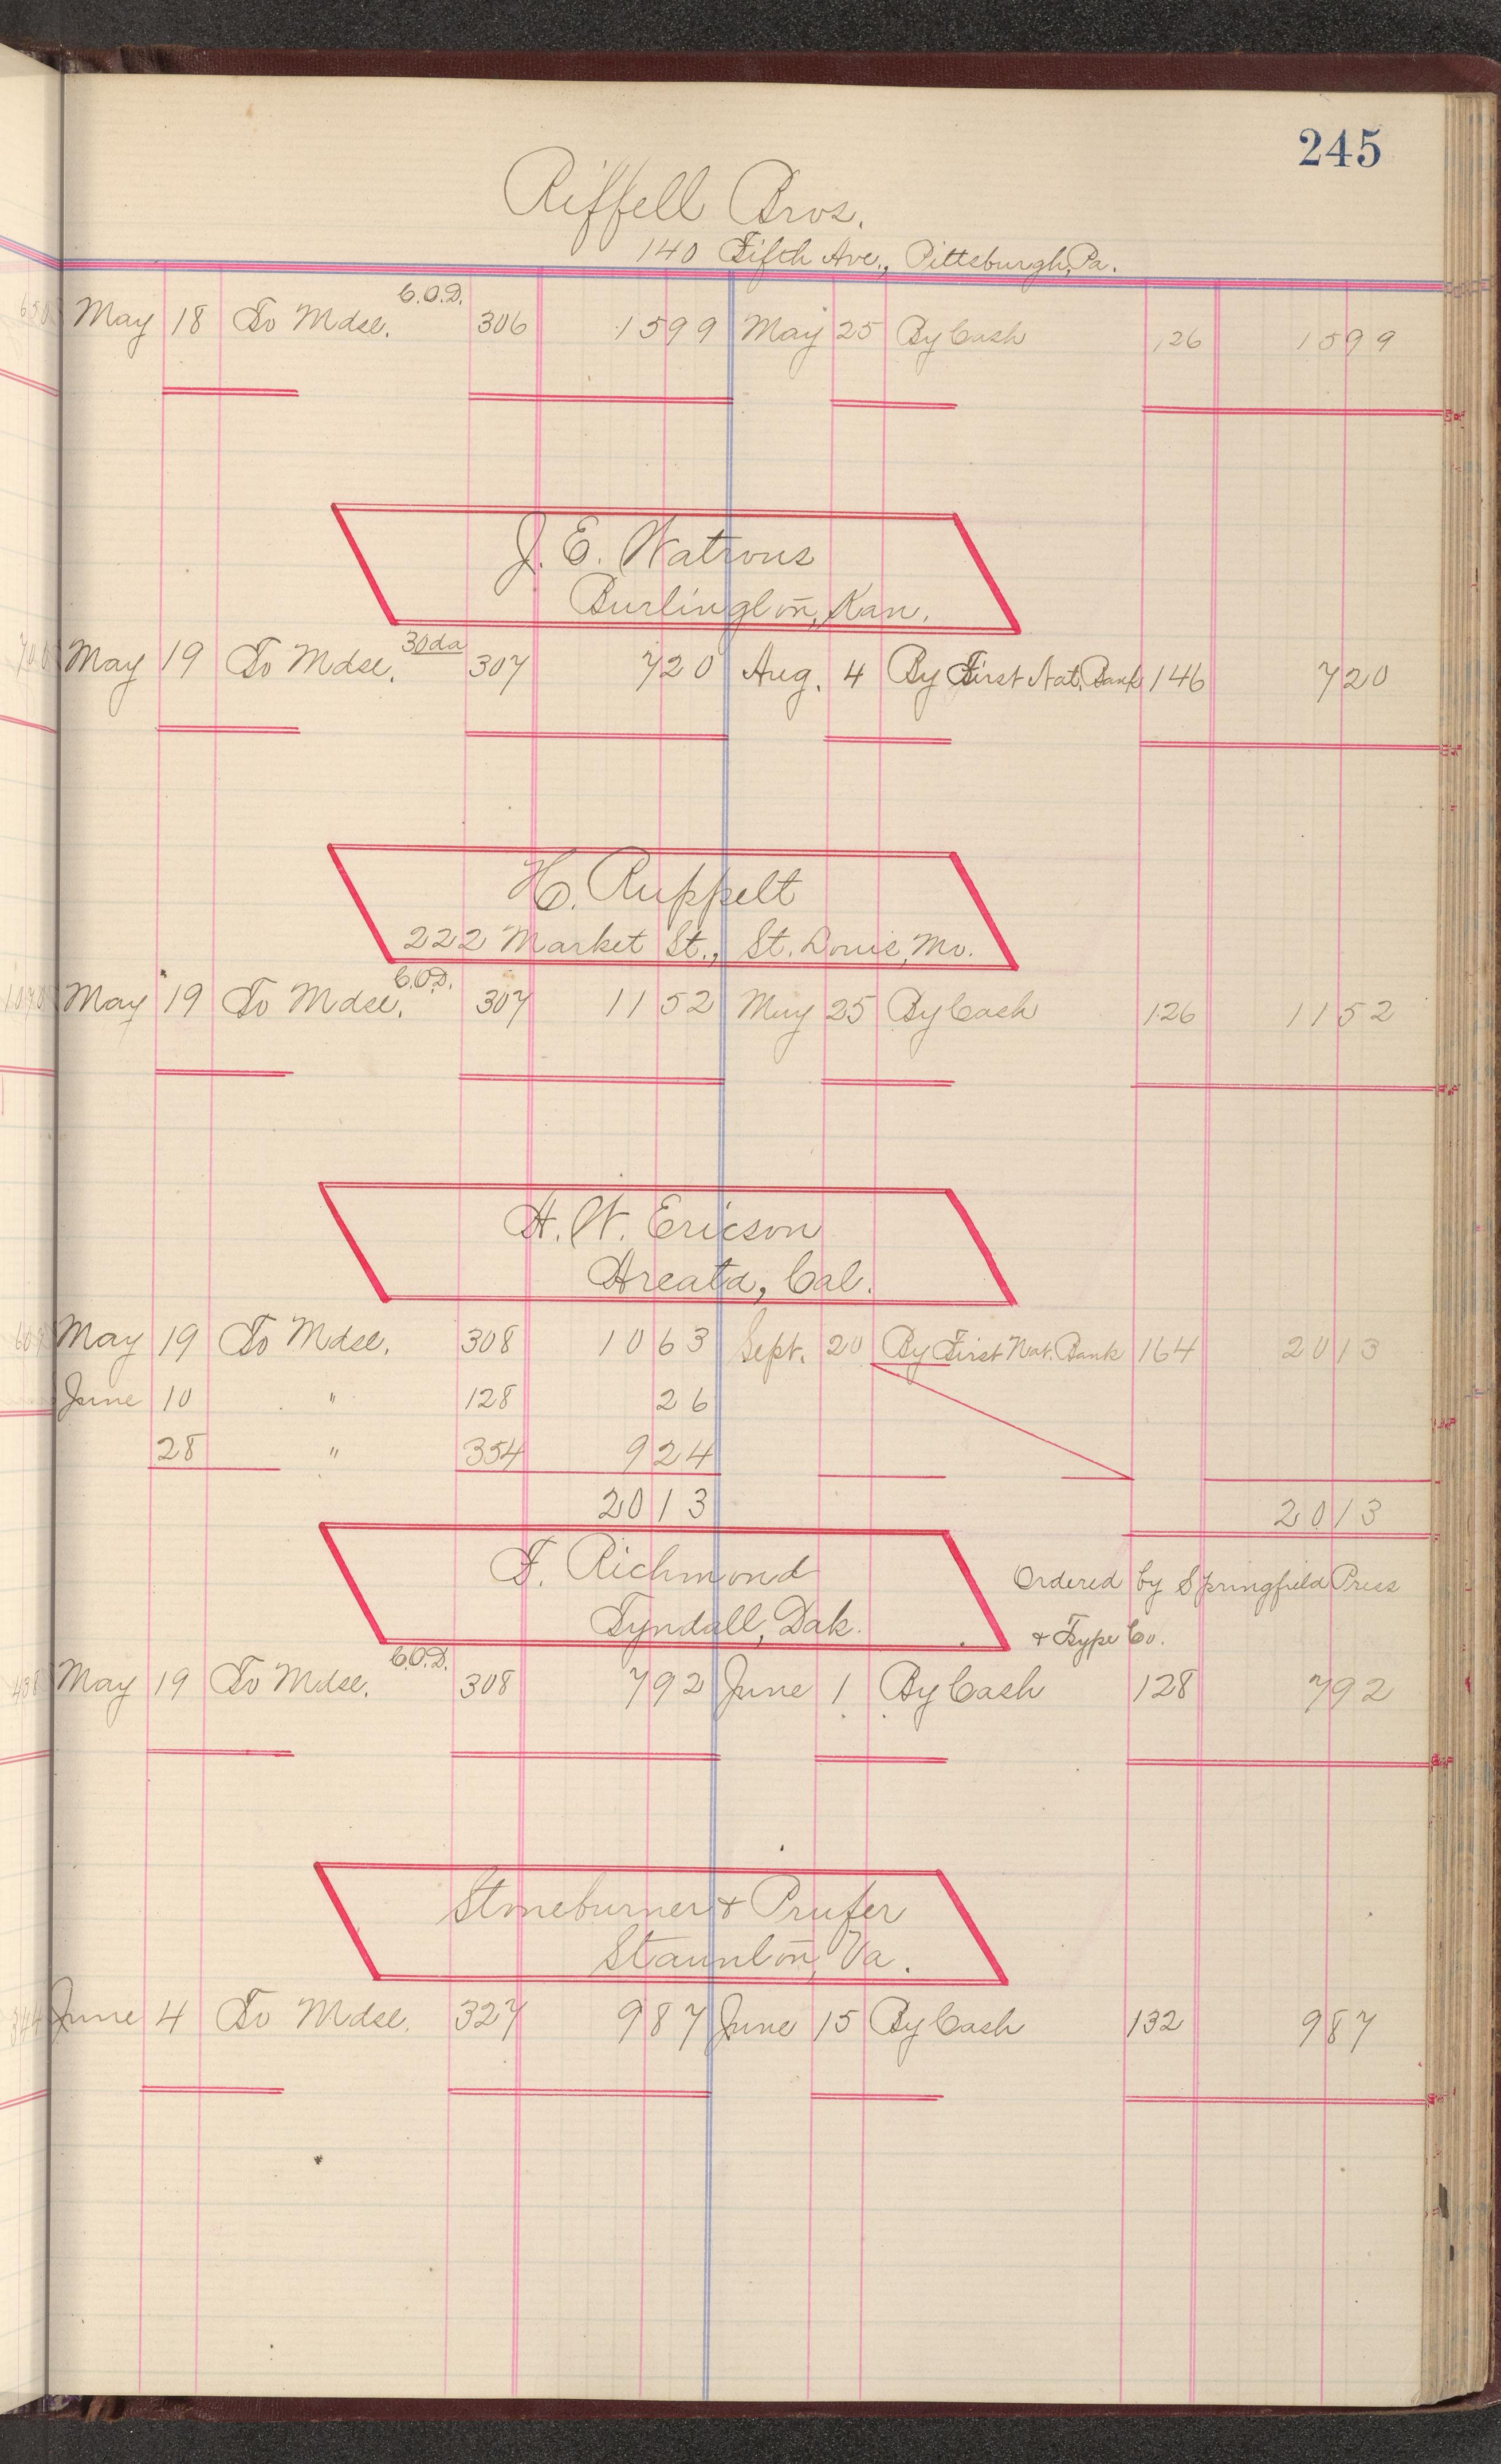 245
Riffell Bros.
140 Fifth Ave., Pittsburgh, Pa.
May 18 To Mdse. C.O.D. 306 15 99 May 25 By Cash 126 15 99
J. E. Watrous
Burlington, Kan.
May 19 To Mdse. 30da 307 7 20 Aug. 4 By First Nat. Bank 146 7 20
H. Ruppelt
222 Market St., St. Louis, Mo.
May 19 To Mdse. C.O.D. 307 11 52 May 25 By Cash 126 11 52
A. W. Ericson
Arcata, Cal.
May 19 To Mdse. 308 10 63 Sept. 20 By First Nat. Bank 164 20 13
June 10 " 128 26
28 " 354 9 24
20 13 20 13
F. Richmond
Tyndall, Dak.
Ordered by Springfield Press
& Type Co.
May 19 To Mdse. C.O.D. 308 7 92 June 1 By Cash 128 7 92
Stoneburner & Prufer
Staunton, Va.
June 4 To Mdse. 327 9 87 June 15 By Cash 132 9 87